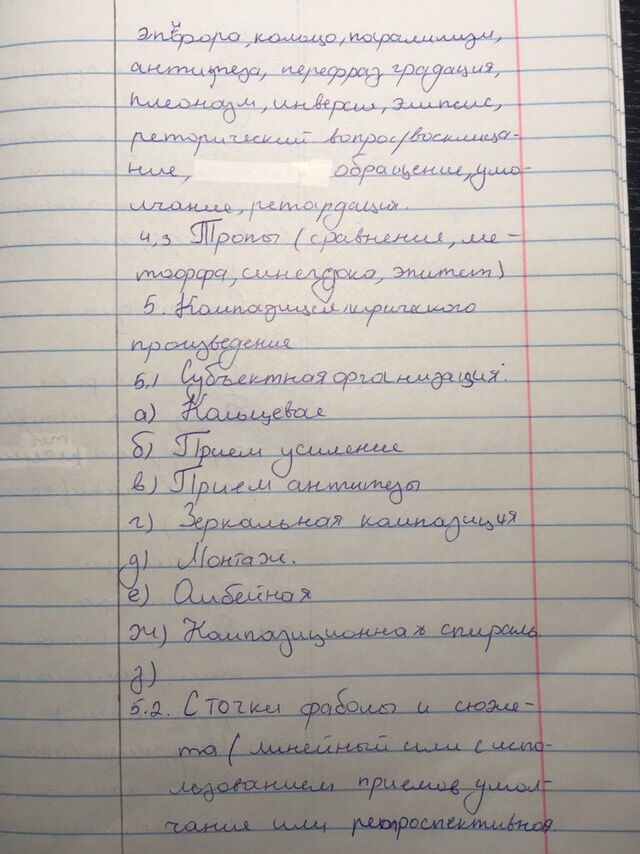 эпифора, кольцо, паралилизм,
антитеза, перефраз градация,
плеоназм, инверсия, элипсис,
реторический вопрос/восклица-
ние, обращение, умо-
лчание, ретардация.
4,3 Тропы (сравнение, ме-
тоффа, синегдока, эпитет)
5. Компазиция лирического
произведение
5.1 Субъектная организация:
а) Кольцевае
б) Прием усиление
в) Прием антитезы
г) Зеркальная компазиция
д) Монтаж.
е) Амбейная
ж) Компазиционная спираль
з)
5.2. С точки фаболы и сюже-
та (линейный или с испо-
льзованием приемов умол-
чание или ретроспективная